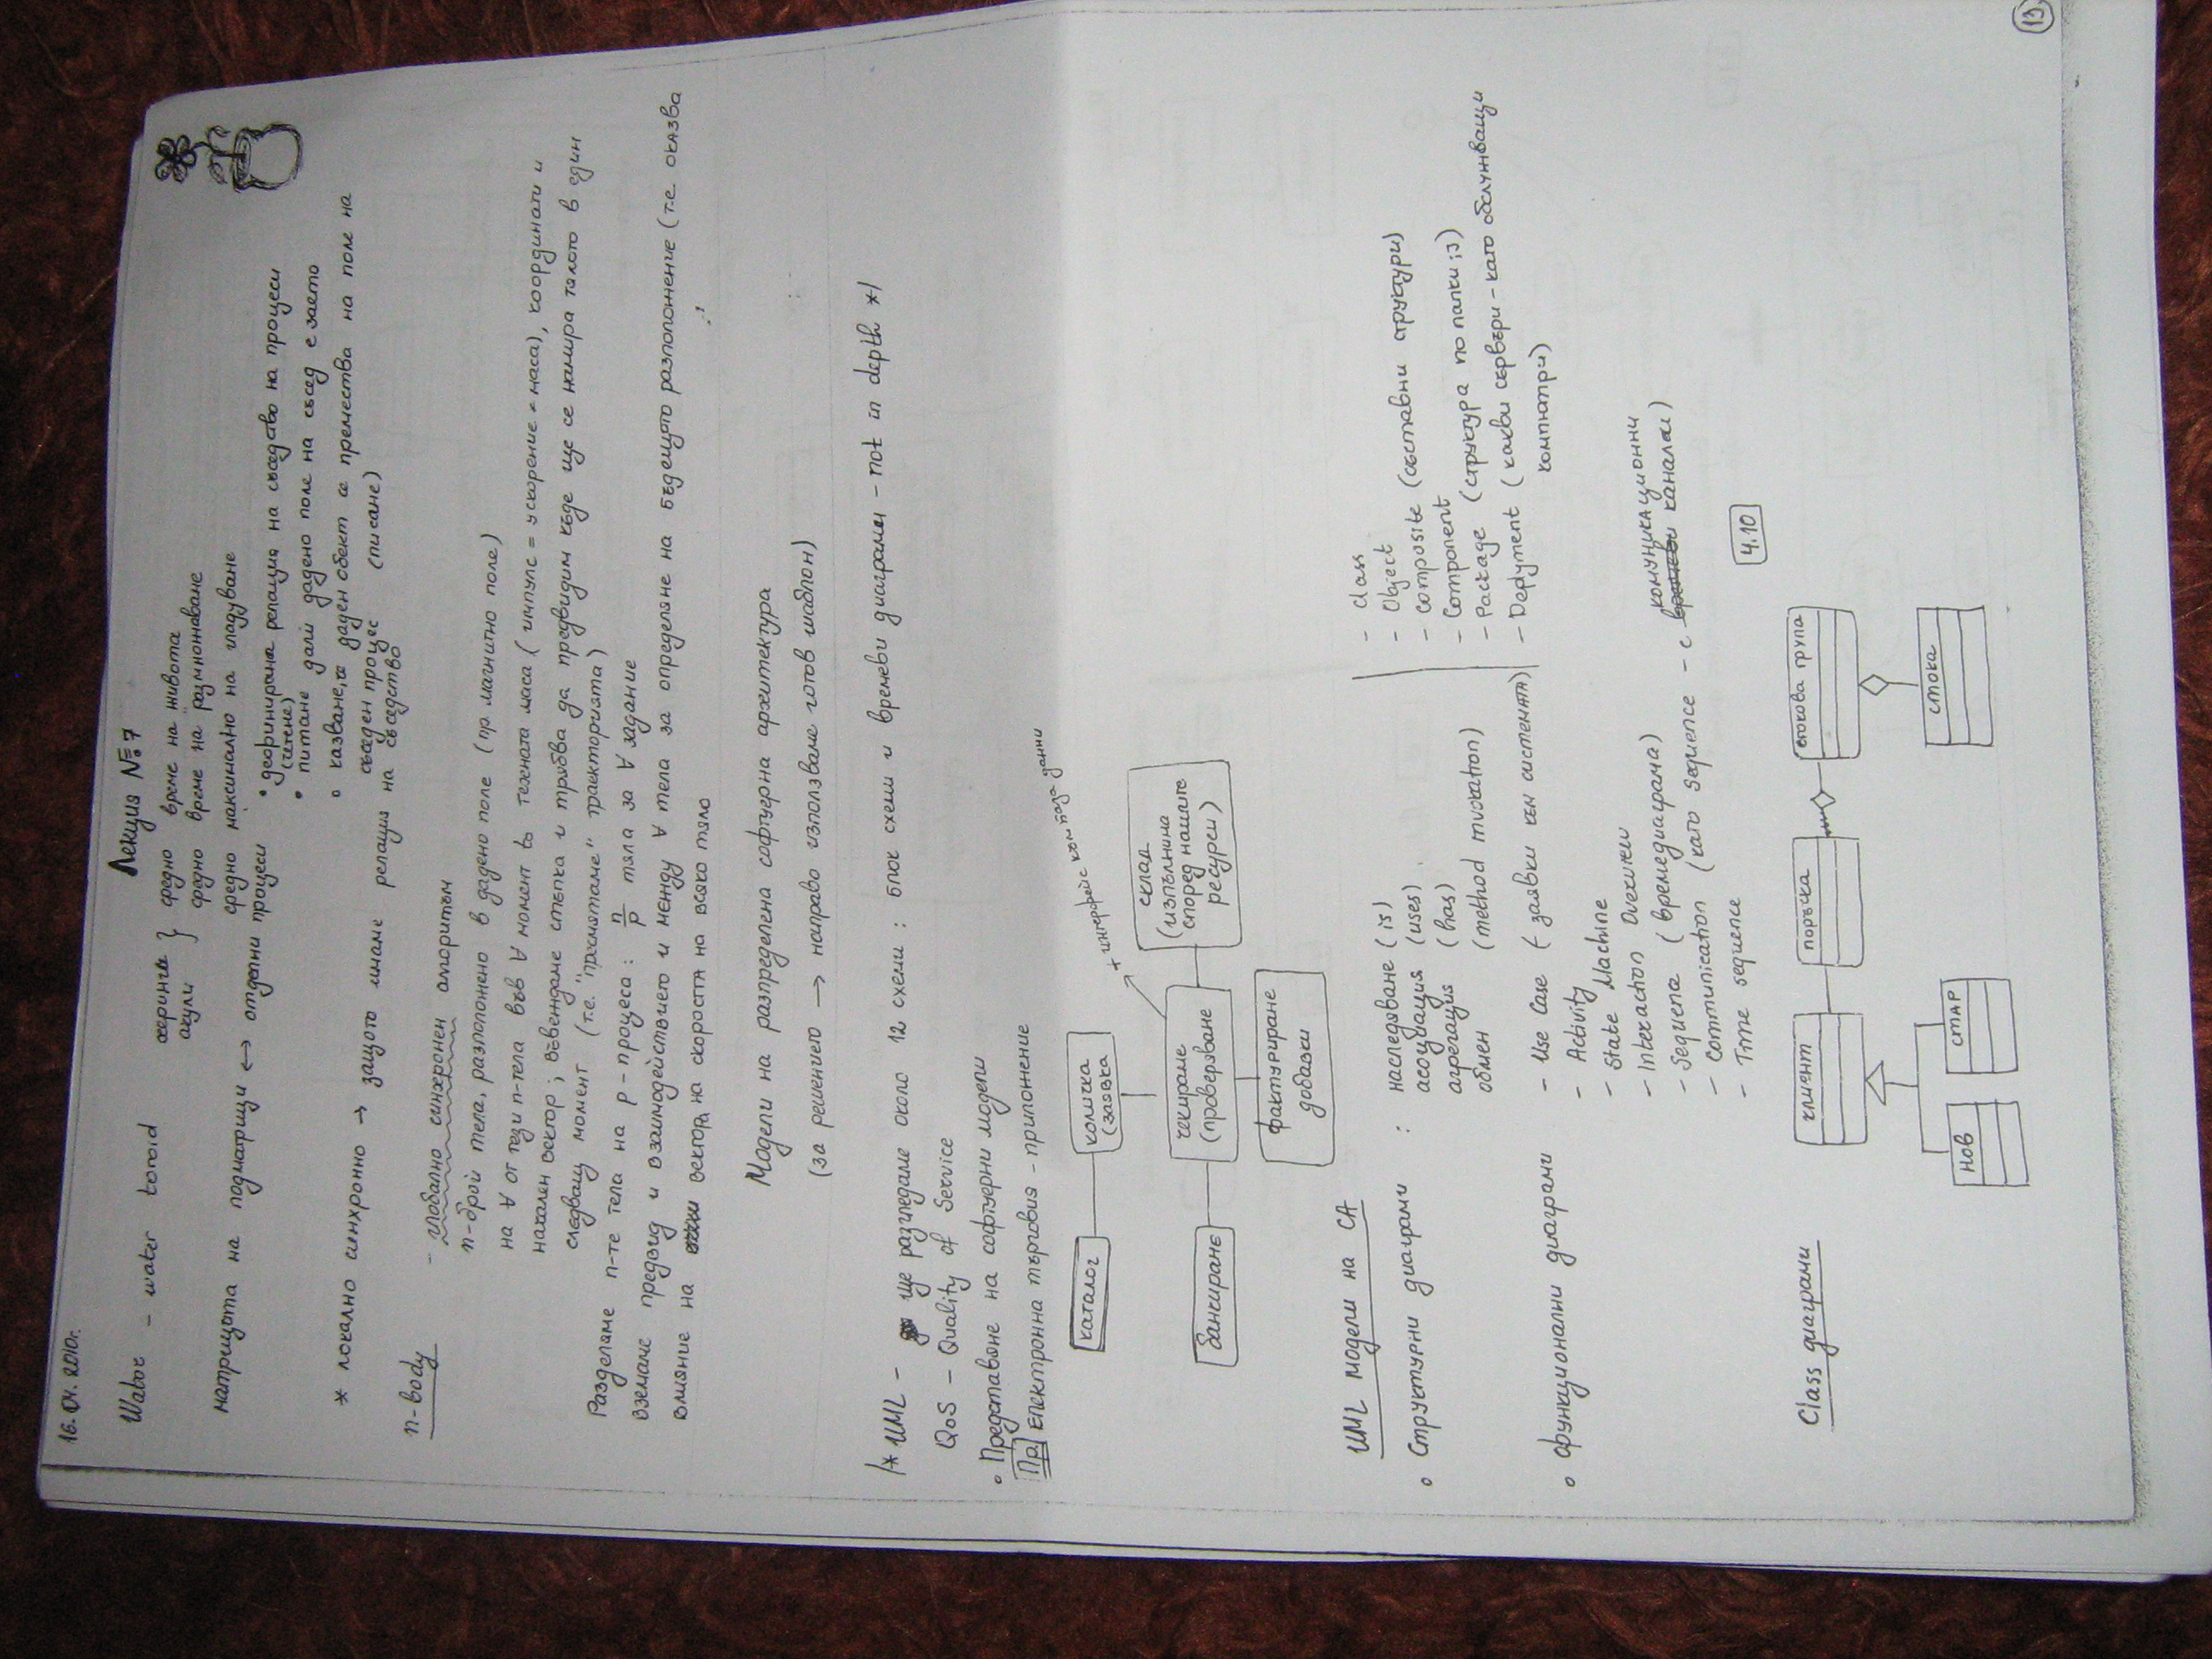 16.04.2010г.
Лекция №7
Wator - water toroid
херинги
акули
} средно време на живота
средно време на размножаване
средно максимално на гладуване
матрицата на подматрици ↔ отделни процеси
• дефинирана релация на съседство на процеси
(четене)
• питане дали дадено поле на съсед е заето
• казване, че даден обект се премества на поле на
съседен процес (писане)
* локално синхронно → защото имаме релация на съседство
n-body
- глобално синхронен алгоритъм
n-брой тела, разположено в дадено поле (пр. магнитно поле)
на ∀ от тези n-тела във ∀ момент to тяхната маса (импулс = ускорение * маса), координати и
начален вектор; въвеждаме стъпка и трябва да предвидим къде ще се намира тялото в един
следващ момент (т.е. "пресмятаме" траекторията)
Разделяме n-те тела на p-процеса: n/p тяла за ∀ задание
Вземаме предвид и взаимодействието и между ∀ тела за определяне на бъдещото разположение (т.е. оказва
влияние на вектора на скоростта на всяко тяло
Модели на разпределена софтуерна архитектура
(за решението → направо използваме готов шаблон)
/* UML - ще разгледаме около 12 схеми: блок схеми и времеви диаграми - not in depth */
QoS - Quality of Service
• Представяне на софтуерни модели
Пр. Електронна търговия - приложение
каталог
количка
(заявка)
+ интерфейс към база данни
банкиране
чекиране
(проверяване)
склад
(изпълнима
според нашите
ресурси)
фактуриране
добавки
UML модели на СА
• Структурни диаграми :
наследяване (is)
асоциация (uses)
агрегация (has)
обмен (method invocation)
- class
- Object
- composite (съставни структури)
- Component
- Package (структура по папки ;))
- Deployment (какви сървъри - като обслужващи
компютри)
• функционални диаграми
- Use Case (заявки към системата)
- Activity
- State Machine
- Interaction Overview
- Sequence (времедиаграма)
- Communication (като sequence - с комуникационни канали)
- Time sequence
4.10
Class диаграми
клиент
поръчка
стокова група
нов
стар
стока
13